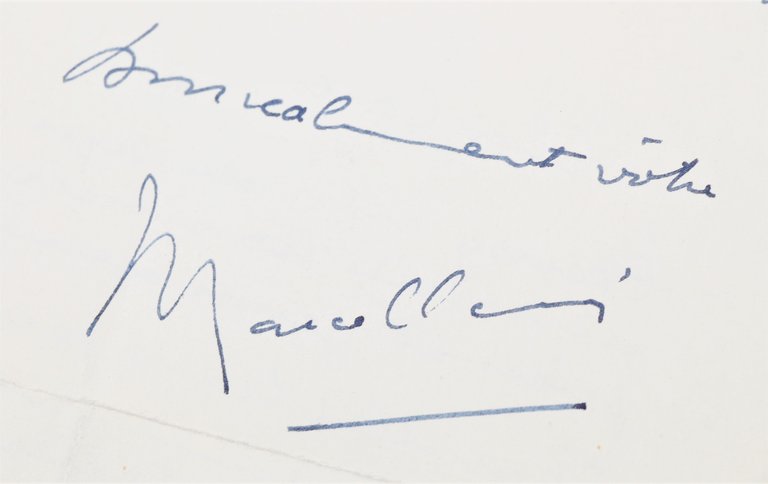 Amicalement vôtre
Marcellin